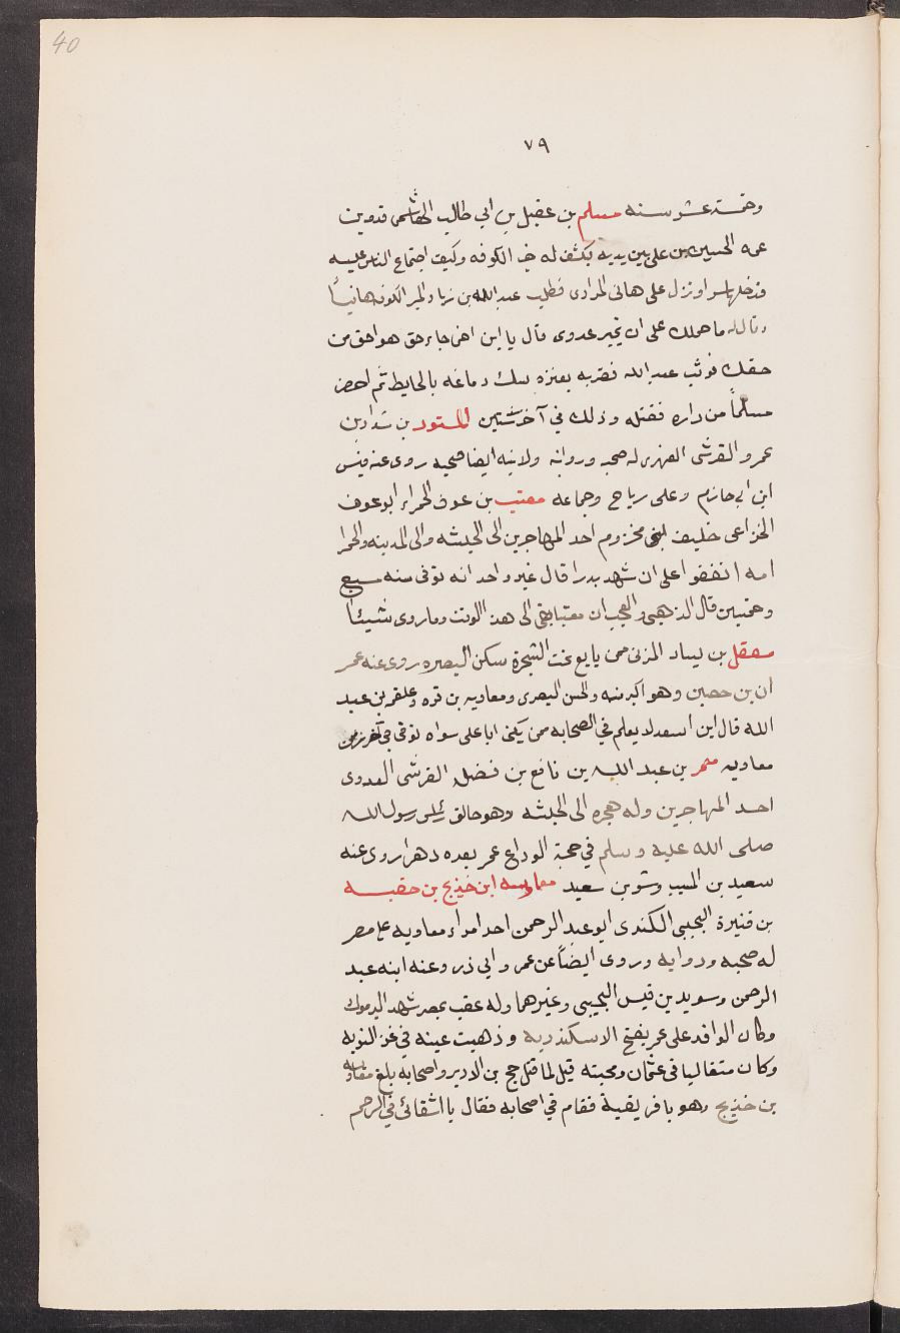 40
٧٩
وخمسة عشر سنه مسلم بن عقيل بن ابي طالب الهاشمى قدوين
عمه الحسين بن على بين يديه يكشف له خبر الكوفه وكيف اجتماع الناس عليه
فدخلها سرا ونزل على هانى المرادى فطلب عبد الله بن زياد امير الكوفه هانيئا
وقال له ما حملك على ان تجير عدوى قال يا ابن اخى جاء حق هو احق من
حقك فوثب عبد الله فضربه بعنزه سك دماغه بالحايط ثم احضر
مسلماً من داره فقتله وذلك في آخر ستين المستورد بن شداد بن
عمرو القرشى الفهرى له صحبه وروايه ولابيه ايضا صحبه روى عنه قيس
ابن ابي حازم وعلى رباح وجماعه معتب بن عوف الحمراء ابو عوف
الخزاعى حليف بنى مخزوم احد المهاجرين الى الحبشه والى المدينه والحمرا
امه اتفقوا على ان شهد بدرا قال غير واحد انه توفى سنه سبع
وخمسين قال الذهبى والعجب ان معتبا بقى الى هذا الوقت وما روى شيئاً
معقل بن يساد المزنى ممن بايع تحت الشجرة سكن البصره روى عنه عمر
ان بن حصين وهو اكبر منه والحسن البصرى ومعاويه بن قره وعلقمه بن عبد
الله قال ابن اسعد لا يعلم في الصحابه من يكنى ابا على سواه توفى في آخر زمن
معاويه معمر بن عبد الله بن نافع بن فضله القرشى العدوى
احد المهاجرين وله هجره الى الحبشه وهو حالق رأس رسول الله
صلى الله عليه وسلم في حجة الوداع عمر بعده دهرا روى عنه
سعيد بن المسيب وبشر بن سعيد معاويه ابن خديج بن حقبه
بن قنيرة التجيبى الكندى ابو عبد الرحمن احد امراء معاويه على مصر
له صحبه وروايه وروى ايضاً عن عمر وابى ذر وعنه ابنه عبد
الرحمن وسويد بن قيس التجيبى وغيرهما وله عقب بمصر شهد اليرموك
وكان الوافد على عمر بفتح الاسكندريه وذهبت عينه في غزو النوبه
وكان متغاليا فى عثمان ومحبته قيل لما قتل حجر بن الادبر واصحابه بلغ معاويه
بن خديج وهو بافريقية فقام في اصحابه فقال يا اشقائى في الرحم